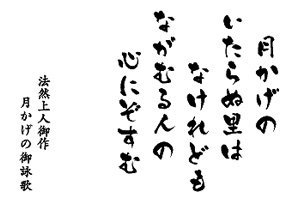 月かげの
いたらぬ里は
なけれども
ながむる人の
心にぞすむ
法然上人御作
月かげの御詠歌